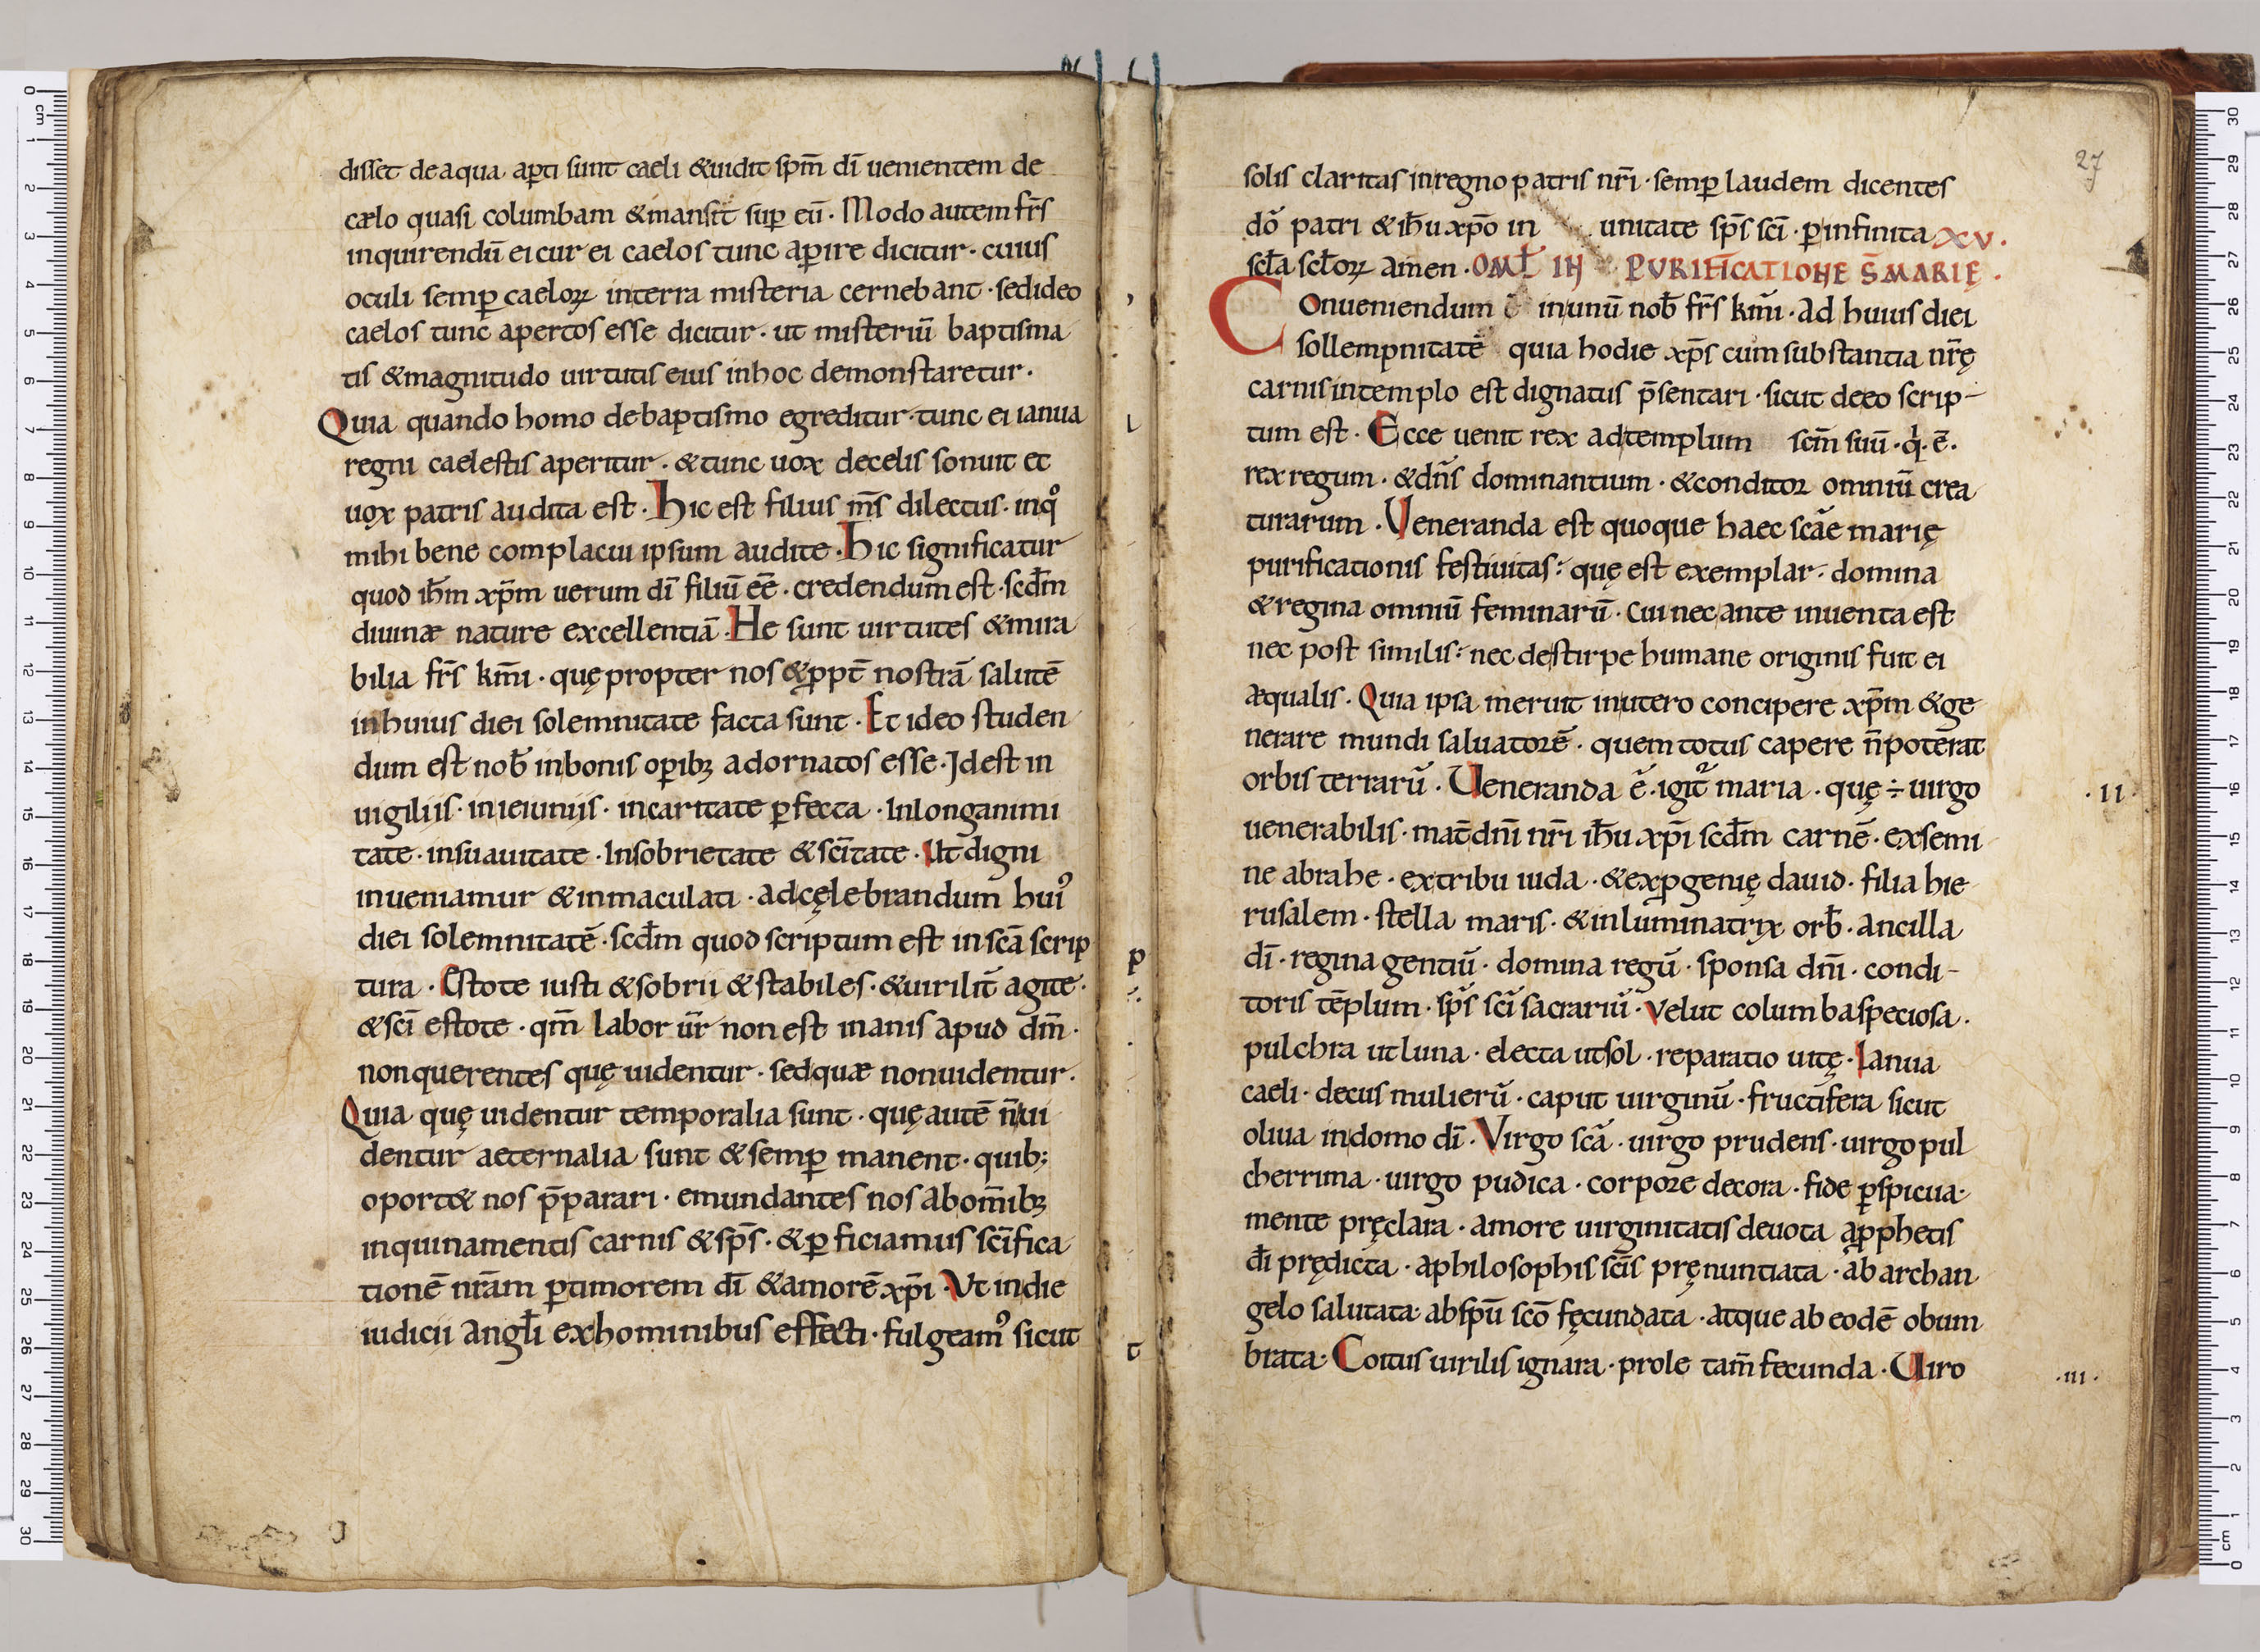 disset de aqua. aꝑti sunt caeli & uidit sp̄m dī uenientem de
cælo quasi columbam & mansit suꝑ eū · Modo autem fr̄s
inquirendū ei cur ei caelos tunc aꝑire dicitur · cuius
oculi semꝑ caeloꝝ in terra misteria cernebant · sed ideo
caelos tunc apertos esse dicitur · ut misteriū baptisma
tis & magnitudo uirtutis eius in hoc demonstraretur ·
Quia quando homo de baptismo egreditur · tunc ei ianua
regni caelestis aperitur · & tunc uox de celis sonuit et
uox patris audita est · Hic est filius m̄s dilectus · in qͦ
mihi bene complacui ipsum audite · Hic significatur
quod ih̄m xp̄m uerum dī filiū eē · credendum est · scd̄m
diuinæ nature excellentiā · He sunt uirtutes & mira
bilia fr̄s km̄i · quę propter nos & ꝓpt̄ nostrā salutē
in huius diei solemnitate facta sunt · Et ideo studen
dum est nob̄ in bonis oꝑibꝫ adornatos esse · Id est in
uigiliis · in ieiuniis · in caritate ꝑfecta · In longanimi
tate · in suauitate · In sobrietate & scītate · Ut digni
inueniamur & inmaculati · ad cęlebrandum hui᾿
diei solemnitatē · scd̄m quod scriptum est in scā scrip
tura · Estote iusti & sobrii & stabiles · & uirilit̄ agite ·
& scī estote · qm̄ labor ūr non est inanis apud dm̄ ·
non querentes quę uidentur · sed quæ non uidentur ·
Quia quę uidentur temporalia sunt · quę autē n̄ ui
dentur aeternalia sunt & semꝑ manent · quib;
oport& nos p̄parari · emundantes nos ab om̄ibꝫ
inquinamentis carnis & sp̄s · & ꝑficiamus scīfica
tionē nr̄am ꝑ timorem dī & amorē xp̄i · Ut in die
iudicii angl̄i ex hominibus effecti · fulgeam᾿ sicut
27
solis claritas in regno patris nr̄i · semꝑ laudem dicentes
dō patri & ih̄u xp̄o in unitate sp̄s scī · ꝑ infinita
scl̄a scl̄oꝝ amen · OML̄ IN PURIFICATIONE S̄ MARIĘ · XV ·
Conueniendum ē in unū nob̄ fr̄s km̄i · ad huius diei
sollempnitatē quia hodie xp̄s cum substantia nr̄ę
carnis in templo est dignatus p̄sentari · sicut de eo scrip-
tum est · Ecce uenit rex ad templum scm̄ suū · qͥ · ē ·
rex regum · & dn̄s dominantium · & conditor omniū crea
turarum · Veneranda est quoque haec scāe marię
purificationis festiuitas : quę est exemplar · domina
& regina omniū feminarū · cui nec ante inuenta est
nec post similis : nec de stirpe humane originis fuit ei
æqualis · Quia ipsa meruit in utero concipere xp̄m & ge
nerare mundi saluatorē · quem totus capere n̄ poterat
orbis terrarū · Veneranda ē · igit᷑ maria · quę ÷ uirgo
· II ·
uenerabilis · mat̄ dn̄i nr̄i ih̄u xp̄i scd̄m carnē · ex semi
ne abrahe · ex tribu iuda · & ex ꝓgenię dauid · filia hie
rusalem · stella maris · & inluminatrix orb̄ · ancilla
dī · regina gentiū · domina regū · sponsa dn̄i · condi-
toris tēplum · sp̄s scī sacrariū · velut columba speciosa ·
pulchra ut luna · electa ut sol · reparatio uitę · Ianua
caeli · decus mulierū · caput uirginū · fructifera sicut
oliua in domo dī · Virgo scā · uirgo prudens · uirgo pul
cherrima · uirgo pudica · corpore decora · fide ꝑspicua ·
mente pręclara · amore uirginitatis deuota a ꝓphetis
dī prędicta · a philosophis scīs pręnuntiata · ab archan
gelo salutata · ab sp̄u scō fęcundata · atque ab eodē obum
brata · Coitus uirilis ignara · prole tam̄ fecunda · Uiro
· III ·